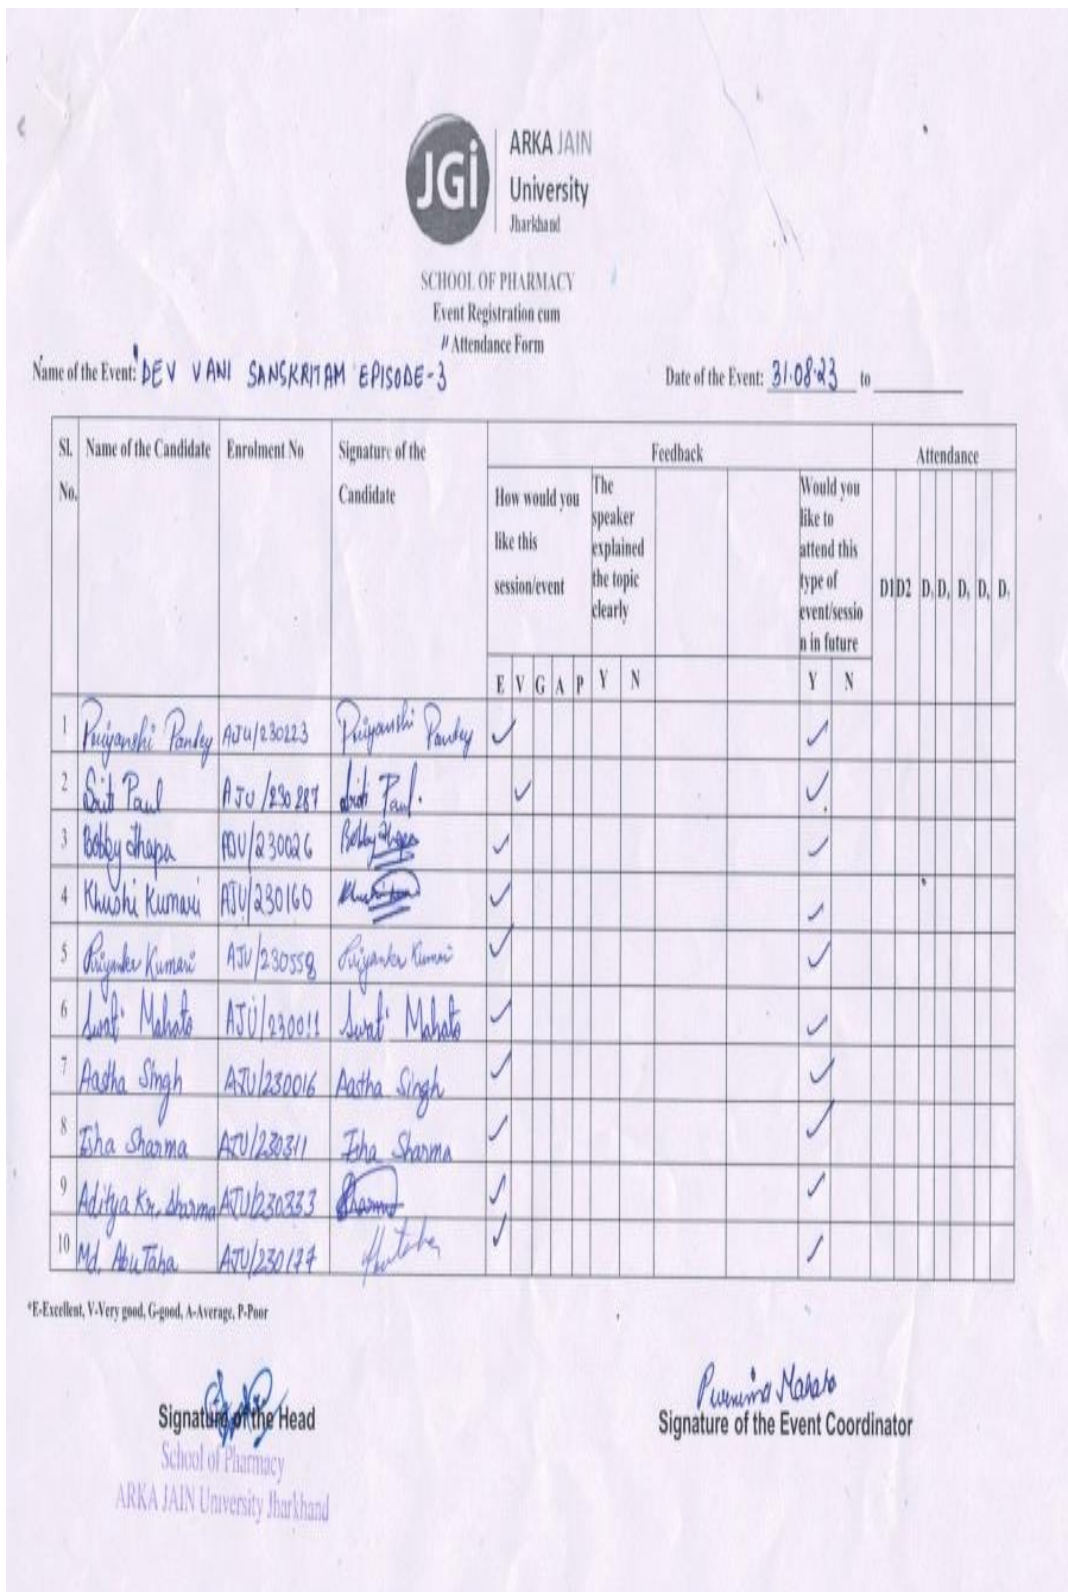 JGi
ARKA JAIN
University
Jharkhand
SCHOOL OF PHARMACY
Event Registration cum
Attendance Form
Name of the Event: DEV VANI SANSKRITAM EPISODE-3 Date of the Event: 31.08.23 to
Sl. No. Name of the Candidate Enrolment No Signature of the Candidate Feedback Attendance
How would you like this session/event The speaker explained the topic clearly Would you like to attend this type of event/session in future D1 D2 D, D, D, D, D,
E V G A P Y N Y N
1 Priyanshi Pandey AJU/230223 Priyanshi Pandey ✓ ✓
2 Sriti Paul AJU/230287 Sriti Paul. ✓ ✓
3 Bobby Thapa AJU/230026 Bobby Thapa ✓ ✓
4 Khushi Kumari AJU/230160 ✓ ✓
5 Priyanka Kumari AJU/230558 Priyanka Kumari ✓ ✓
6 Swati Mahato AJU/230011 Swati Mahato ✓ ✓
7 Aastha Singh AJU/230016 Aastha Singh ✓ ✓
8 Isha Sharma AJU/230311 Isha Sharma ✓ ✓
9 Aditya Kr. Sharma AJU/230333 Sharma ✓ ✓
10 Md. Abu Taha AJU/230177 ✓ ✓
*E-Excellent, V-Very good, G-good, A-Average, P-Poor
Purnima Mahato
Signature of the Head Signature of the Event Coordinator
School of Pharmacy
ARKA JAIN University Jharkhand